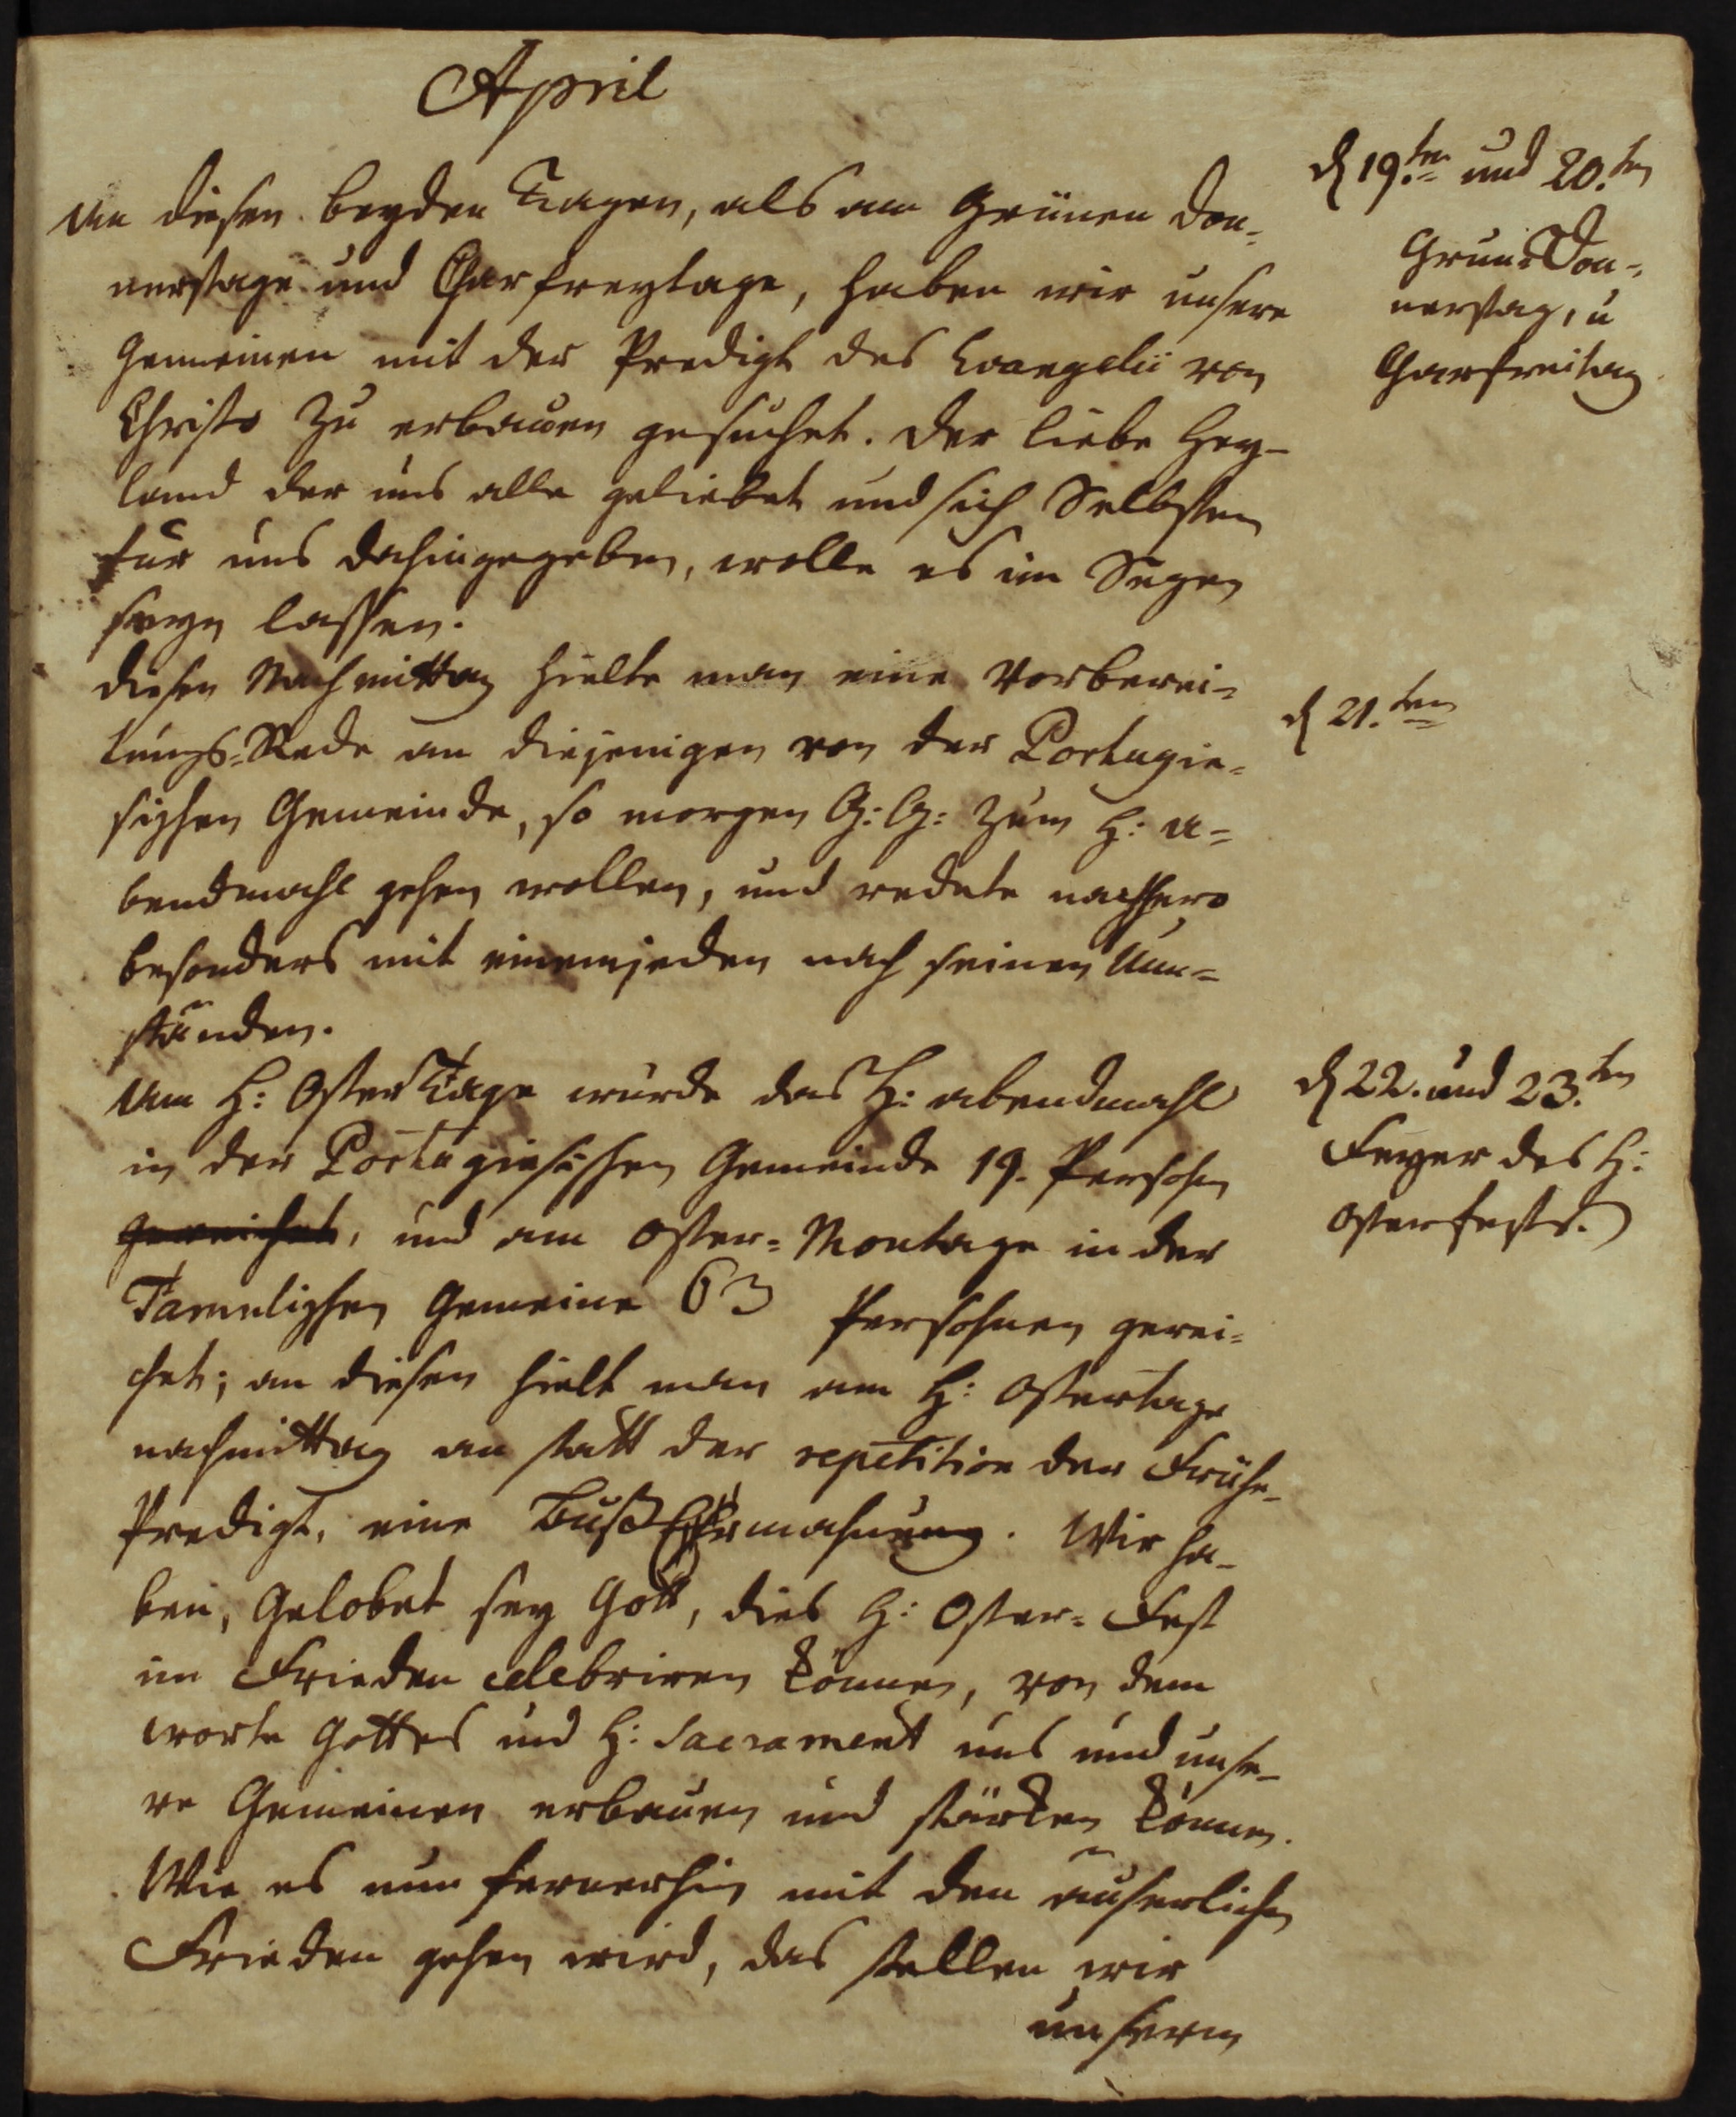 April
An diesen beyden Tagen, als am Grünen Don-
nerstage und Charfreytage, haben wir unsere
Gemeinen mit der Predigt des Evangelii von
Christo zu erbauen gesuchet. Der liebe Hey-
land der uns alle geliebet und sich Selbsten
für uns dahingegeben, wolle es im Segen
seyn lassen.
Diesen Nachmittag hielte man eine Vorberei-
tungs-Rede an diejenigen von der Portugie-
sischen Gemeinde, so morgen G: G: zum H: A-
bendmahl gehen wollen, und redete nachhero
besonders mit einem jeden nach seinen Um-
ständen.
Am H: OsterTage wurde das H: abendmahl
in der Portugiesischen Gemeinde 19. Persohn
gereichet, und am Oster-Montage in der
Tamulischen Gemeine 63 Persohnen gerei-
chet; an diesen hielt man am H: Ostertage
nachmittag an statt der repetition der Frühe-
Predigt, eine Buß Ermahnung. Wir ha-
ben, Gelobet sey Gott, dies H: Oster-Fest
im Frieden celebriren können, von dem
worte Gottes und H: Sacrament uns und unse-
re Gemeinen erbauen und stärken können.
Wie es nun fernerhin mit den äuserlichen
Frieden gehen wird, das stellen wir
unserm
d 19.ten und 20.ten
Grün-Don-
nerstag, u
Charfreitag
d 21.ten
d 22. und 23.ten
Feyer des H:
Osterfests.